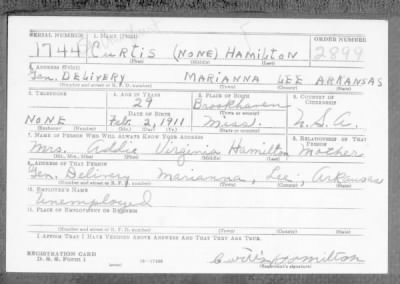 SERIAL NUMBER 1. NAME (Print) ORDER NUMBER
1744 CURTIS (NONE) HAMILTON 2899
(First) (Middle) (Last)
2. ADDRESS (Print)
Gen. DELIVERY MARIANNA LEE ARKANSAS
(Number and street or R. F. D. number) (Town) (County) (State)
3. TELEPHONE 4. AGE IN YEARS 5. PLACE OF BIRTH 6. COUNTRY OF
CITIZENSHIP
29 Brookhaven
DATE OF BIRTH (Town or county)
NONE Feb. 2, 1911 Miss. U.S.A.
(Exchange) (Number) (Mo.) (Day) (Yr.) (State or country)
7. NAME OF PERSON WHO WILL ALWAYS KNOW YOUR ADDRESS 8. RELATIONSHIP OF THAT
PERSON
Mrs. Addie Virginia Hamilton Mother
(Mr., Mrs., Miss) (First) (Middle) (Last)
9. ADDRESS OF THAT PERSON
Gen. Delivery Marianna, Lee, Arkansas
(Number and street or R. F. D. number) (Town) (County) (State)
10. EMPLOYER'S NAME
Unemployed
11. PLACE OF EMPLOYMENT OR BUSINESS
(Number and street or R. F. D. number) (Town) (County) (State)
I AFFIRM THAT I HAVE VERIFIED ABOVE ANSWERS AND THAT THEY ARE TRUE.
REGISTRATION CARD
D. S. S. Form 1 16-17105 Curtis Hamilton
(Registrant's signature)